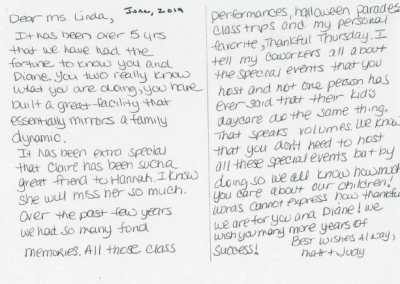 Dear Ms. Linda,
June, 2019
It has been over 5 yrs
that we have had the
fortune to know you and
Diane. You two really know
what you are doing, you have
built a great facility that
essentially mirrors a family
dynamic.
It has been extra special
that Claire has been such a
great friend to Hannah. I know
she will miss her so much.
Over the past few years
we had so many fond
memories. All those class
performances, halloween parades
class trips and my personal
favorite, Thankful Thursday. I
tell my coworkers all about
the special events that you
host and not one person has
ever said that their kids
daycare do the same thing.
That speaks volumes. We know
that you don't need to host
all these special events but by
doing so we all know how much
you care about our children!
Words cannot express how thankful
we are for you and Diane! We
wish you many more years of
success!
Best Wishes Always,
Matt + Judy